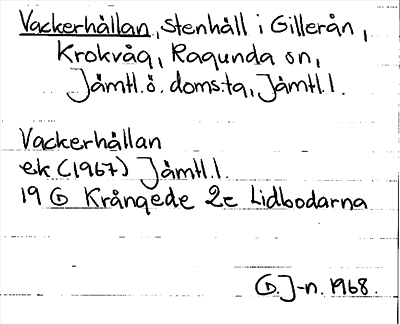 Vackerhällan, stenhäll i Gillerån,
Krokvåg, Ragunda sn,
Jämtl. ö. doms:ta, Jämtl. l.
Vackerhällan
ek. (1967) Jämtl. l.
19 G Krångede 2c Lidbodarna
G.J-n. 1968.